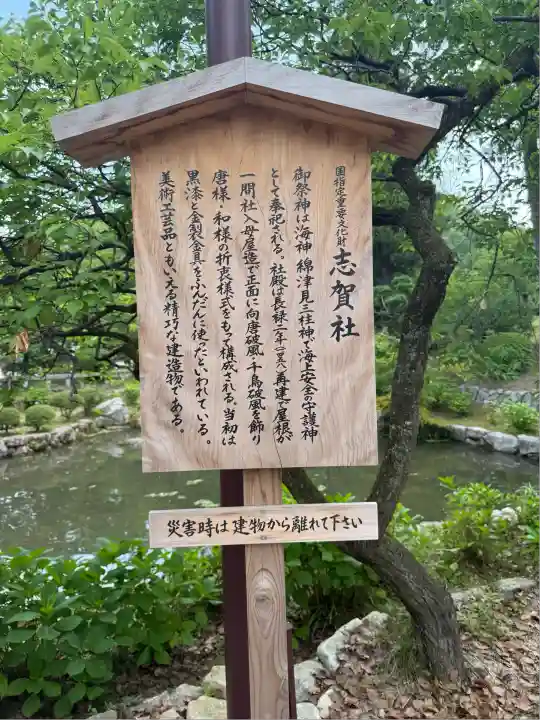 国指定重要文化財
志賀社
御祭神は海神 綿津見三柱神で海上安全の守護神
として奉祀される。社殿は長禄二年(一四五八)再建で屋根が
一間社入母屋造で正面に向唐破風、千鳥破風を飾り
唐様・和様の折衷様式をもって構成される。当初は
黒漆と金製金具をふんだんに使ったといわれている。
美術工芸品ともいえる精巧な建造物である。
災害時は建物から離れて下さい